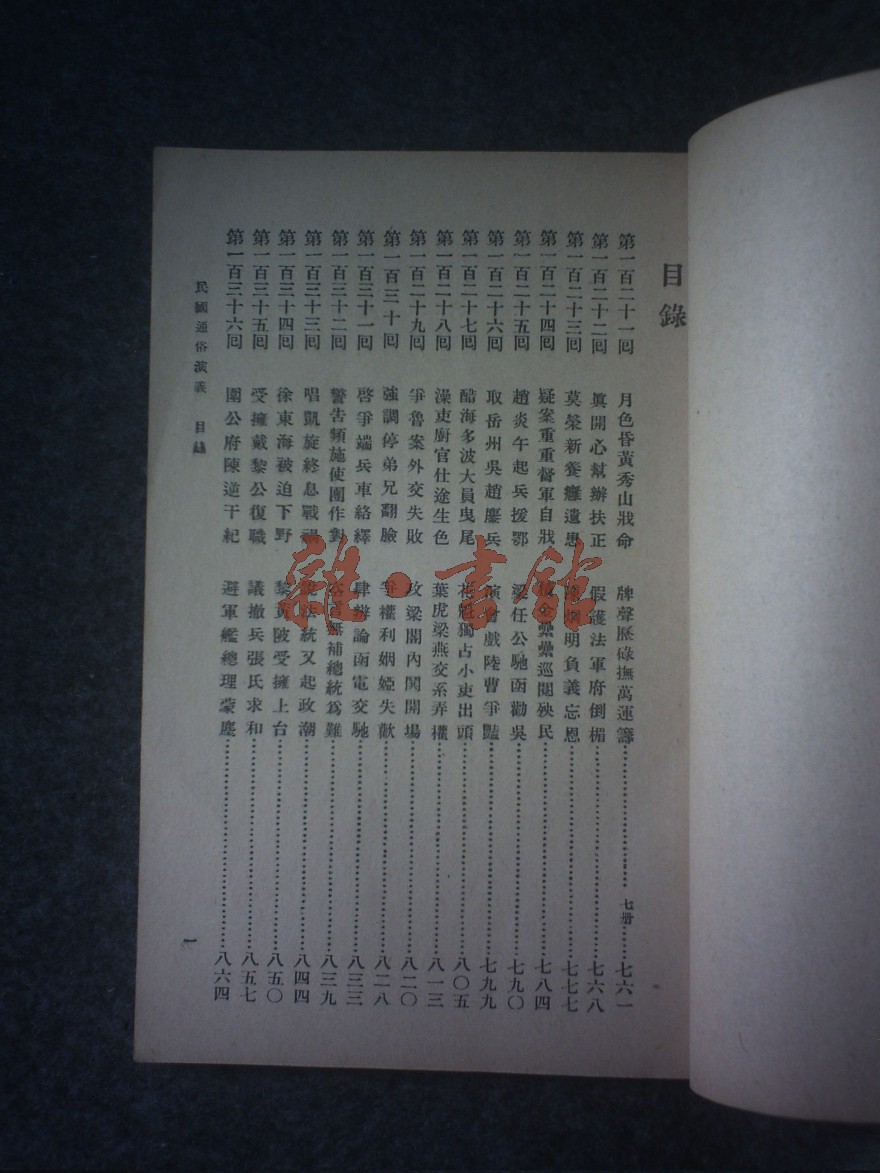 目錄
第一百二十一回 月色昏黃秀山戕命 牌聲歷碌撫萬運籌……七册……七六一
第一百二十二回 眞開心幫辦扶正 假護法軍府倒楣……七六八
第一百二十三回 莫榮新養癰遺患 陳炯明負義忘恩……七七七
第一百二十四回 疑案重重督軍自戕 金纍纍巡閱殃民……七八四
第一百二十五回 趙炎午起兵援鄂 梁任公馳函勸吳……七九〇
第一百二十六回 取岳州吳趙鏖兵 演會戲陸曹爭豔……七九九
第一百二十七回 醋海多波大員曳尾 花魁獨占小吏出頭……八〇五
第一百二十八回 澡吏廚官仕途生色 葉虎梁燕交系弄權……八一三
第一百二十九回 爭魯案外交失敗 攻梁閣內鬨開場……八二〇
第一百三十回 強調停弟兄翻臉 爭權利姻婭失歡……八二八
第一百三十一回 啓爭端兵車絡繹 肆辯論函電交馳……八三三
第一百三十二回 警告頻施使團作對 無補總統爲難……八三九
第一百三十三回 唱凱旋終息戰禍 說法統又起政潮……八四四
第一百三十四回 徐東海被迫下野 黎黃陂受擁上台……八五〇
第一百三十五回 受擁戴黎公復職 議撤兵張氏求和……八五七
第一百三十六回 圍公府陳逆干紀 避軍艦總理蒙塵……八六四
民國通俗演義 目錄
一
雜·書館